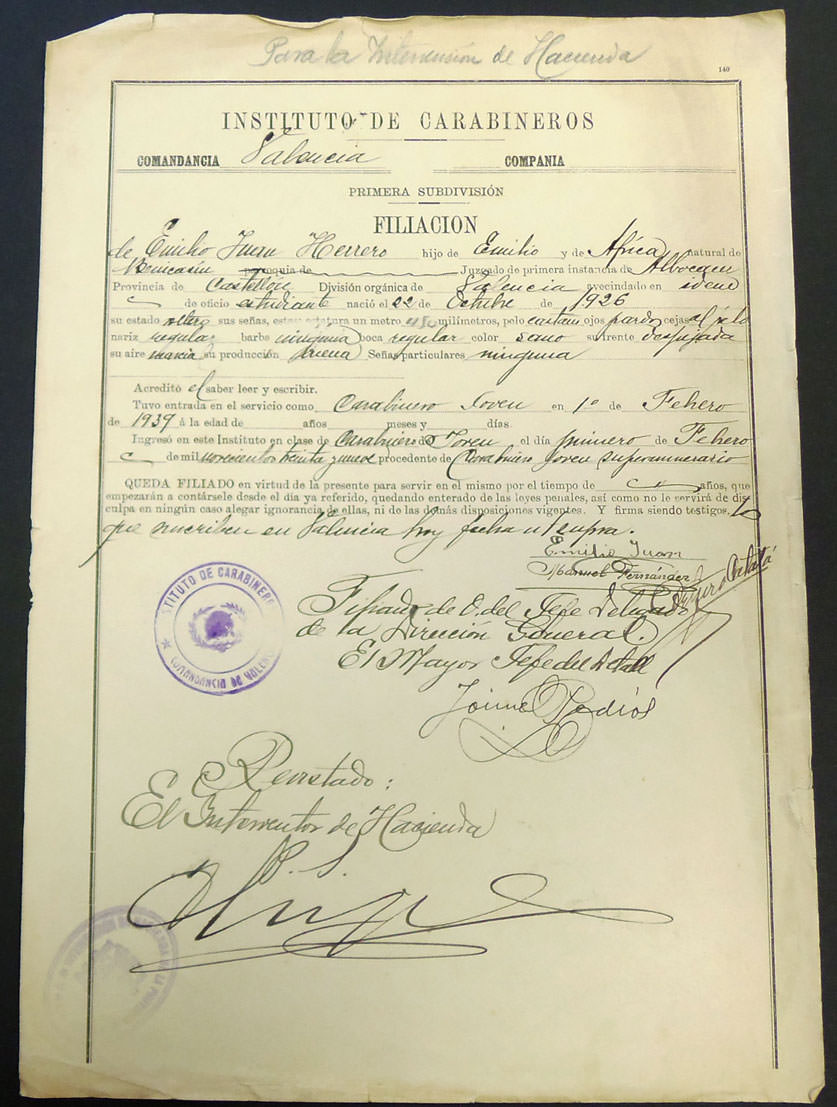 Para la Intervensión de Hacienda
140
INSTITUTO DE CARABINEROS
COMANDANCIA Valencia COMPANIA
PRIMERA SUBDIVISIÓN
FILIACION
de Emilio Juan Herrero hijo de Emilio y de Africa natural de
Benicasin parroquia de Juzgado de primera instancia de
Provincia de Castellón División orgánica de Valencia avecindado en idem
de oficio estudiante nació el 22 de Octubre de 1926
su estado soltero sus señas, estas estatura un metro 450 milímetros, pelo castaño ojos pardos cejas al pelo
nariz regular barba ninguna boca regular color sano su frente despejada
su aire marcial su producción buena Señas particulares ninguna
Acreditó el saber leer y escribir.
Tuvo entrada en el servicio como Carabinero Joven en 1º de Febrero
de 1939 á la edad de años meses y días.
Ingresó en este Instituto en clase de Carabinero Joven el día primero de Febrero
de mil novecientos treinta y nueve procedente de Carabinero Joven supernumerario
QUEDA FILIADO en virtud de la presente para servir en el mismo por el tiempo de años, que
empezarán a contársele desde el día ya referido, quedando enterado de las leyes penales, así como no le servirá de dis-
culpa en ningún caso alegar ignorancia de ellas, ni de las demás disposiciones vigentes. Y firma siendo testigos, lo
que suscriben en Valencia hoy fecha ut supra.
Emilio Juan
Manuel Fernández
Arturo Catalá
Filiado de O. del Jefe Delegado
de la Dirección General.
El Mayor Jefe del Detall
Jaime
INSTITUTO DE CARABINEROS
COMANDANCIA DE VALENCIA
Revistado:
El Interventor de Hacienda
P. S.